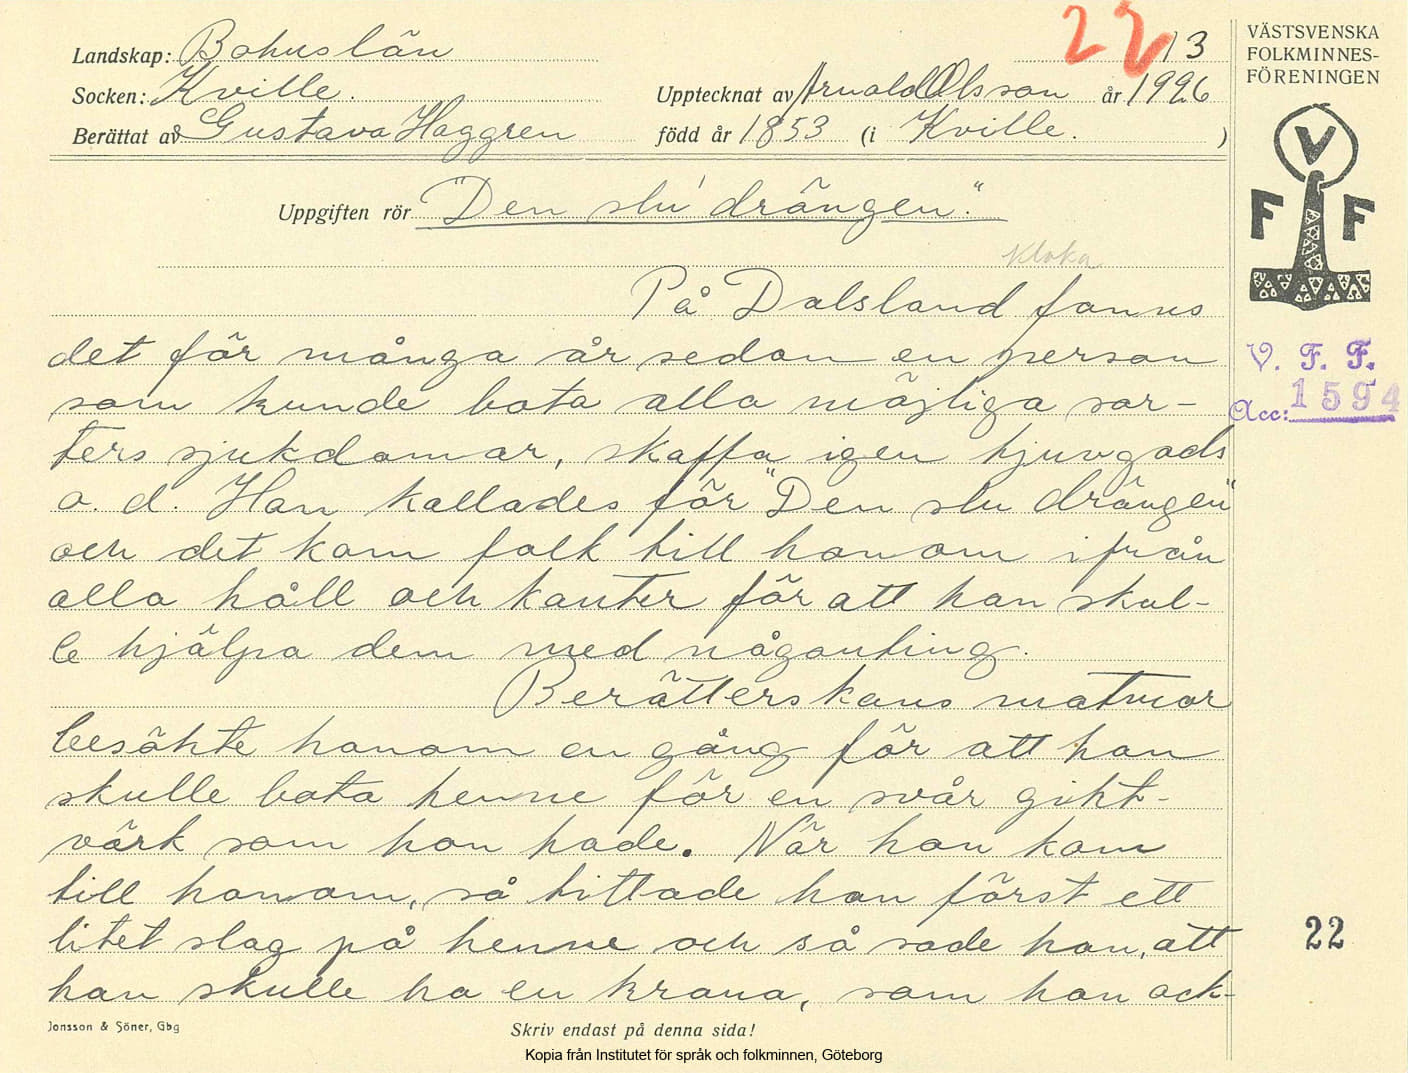 22 13
Landskap: Bohuslän
Socken: Kville. Upptecknat av Arnold Olsson år 1926
Berättat av Gustava Haggren född år 1853 (i Kville.)
Uppgiften rör "Den slu' drängen".
kloka
På Dalsland fanns
det för många år sedan en person
som kunde bota alla möjliga sor-
ters sjukdomar, skaffa igen tjuvgods
o. d. Han kallades för "Den slu drängen"
och det kom folk till honom ifrån
alla håll och kanter för att han skul-
le hjälpa dem med någonting.
Berätterskans matmor
besökte honom en gång för att han
skulle bota henne för en svår gikt-
värk som hon hade. När hon kom
till honom, så tittade han först ett
litet slag på henne och så sade han, att
han skulle ha en krona, som hon ock-
Jonsson & Söner, Gbg
Skriv endast på denna sida!
Kopia från Institutet för språk och folkminnen, Göteborg
VÄSTSVENSKA
FOLKMINNES-
FÖRENINGEN
V
F F
V. F. F.
Acc: 1594
22